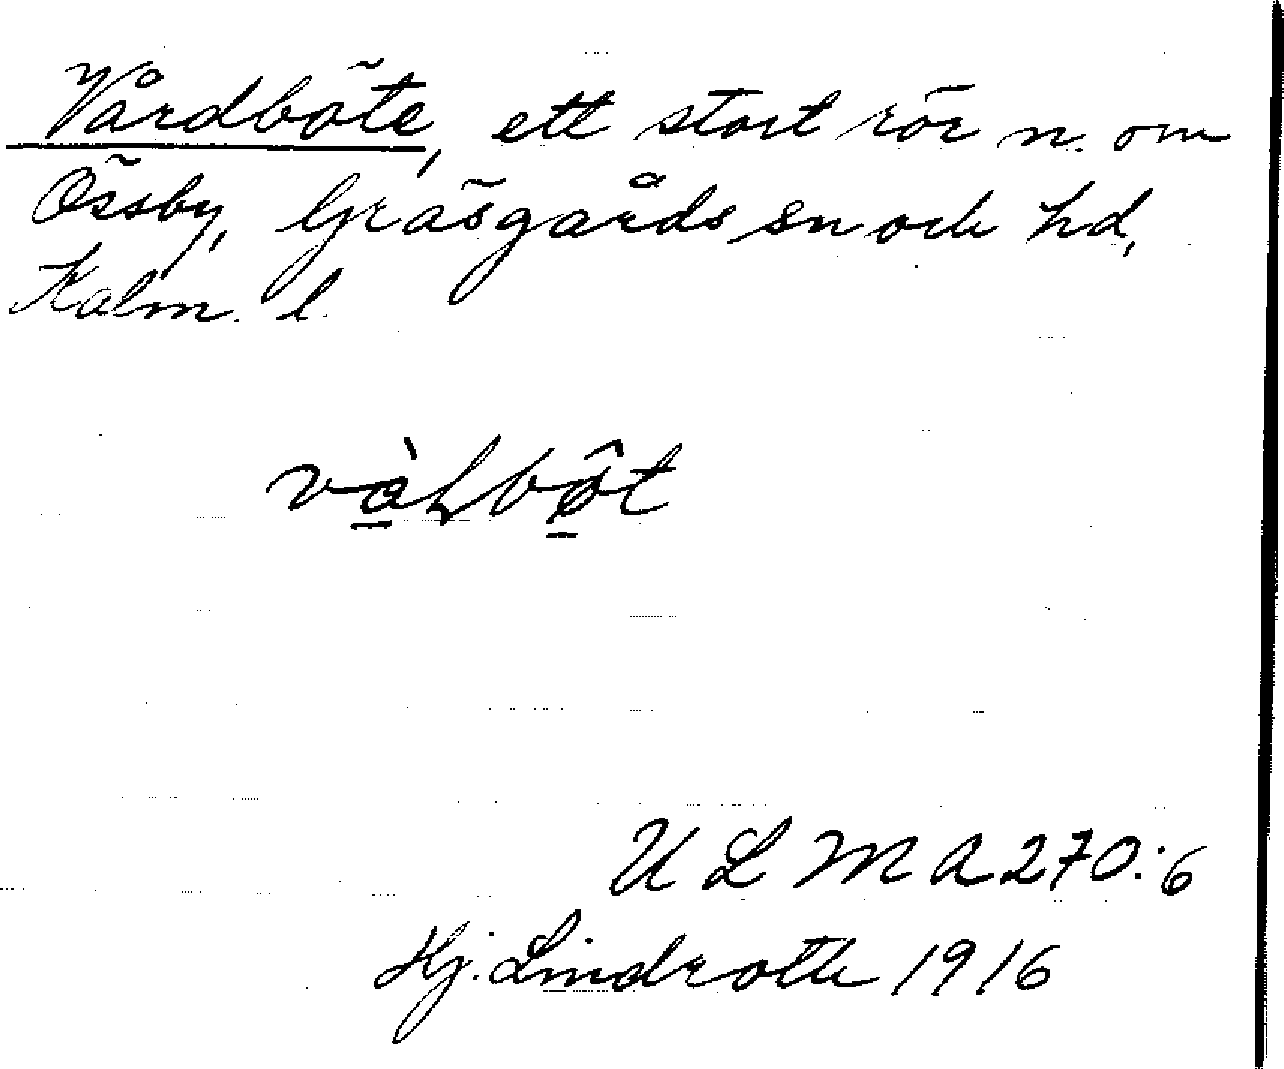 Vårdböte, ett stort rör n. om
Össby, Gräsgårds sn och hd,
Kalm. l.
U L M A 270:6
Hj. Lindroth 1916